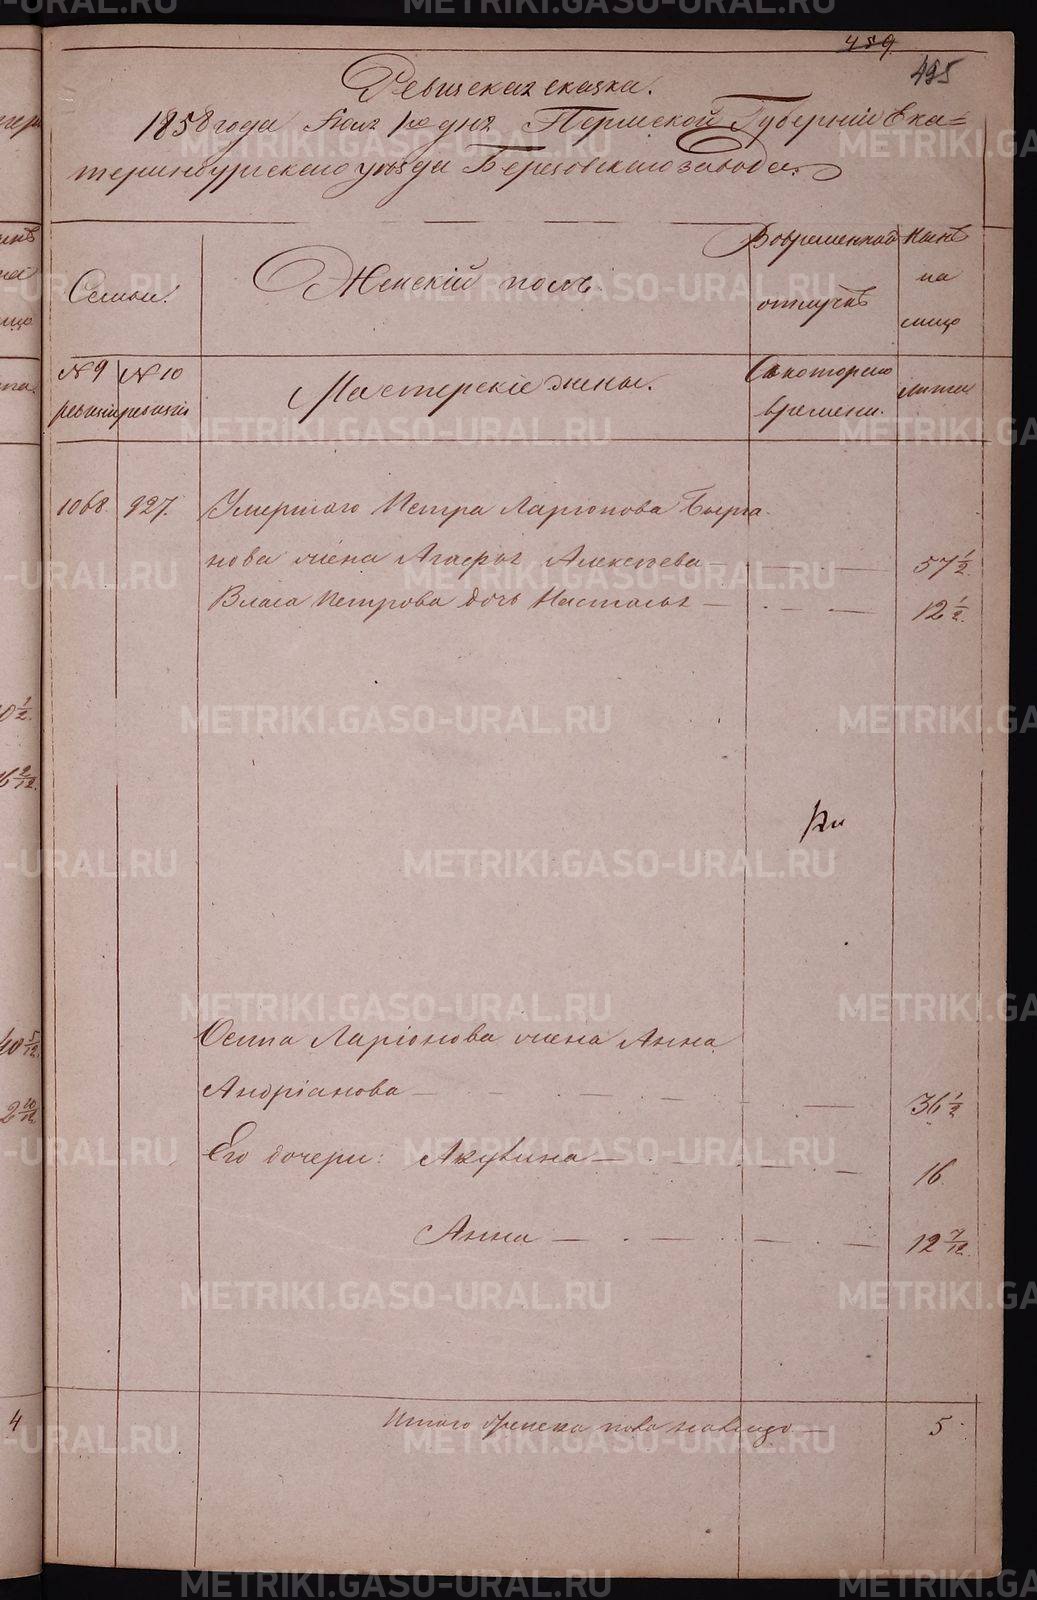 459
495
Ревизская сказка.
1858 года Мая 1го дня Пермской Губерніи Ека=
теринбургскаго уѣзда Березовскаго завода.
Семьи.
Женскій полъ.
Во временной
отлучкѣ
Нынѣ
на
лицо
№ 9
ревизіи
№ 10
ревизіи
Мастерскіе жены.
Съ котораго
времени.
лѣта
1068. 927. Умершаго Петра Ларіонова
нова жена Агафья Алексѣева 57 1/2
Власа Петрова дочь Настасья 12 1/2
Осипа Ларіонова жена Анна
Андріанова 36 1/2
Его дочери: Акулина 16
Анна 12 7/12
Итого женска пола на лицо 5
METRIKI.GASO-URAL.RU